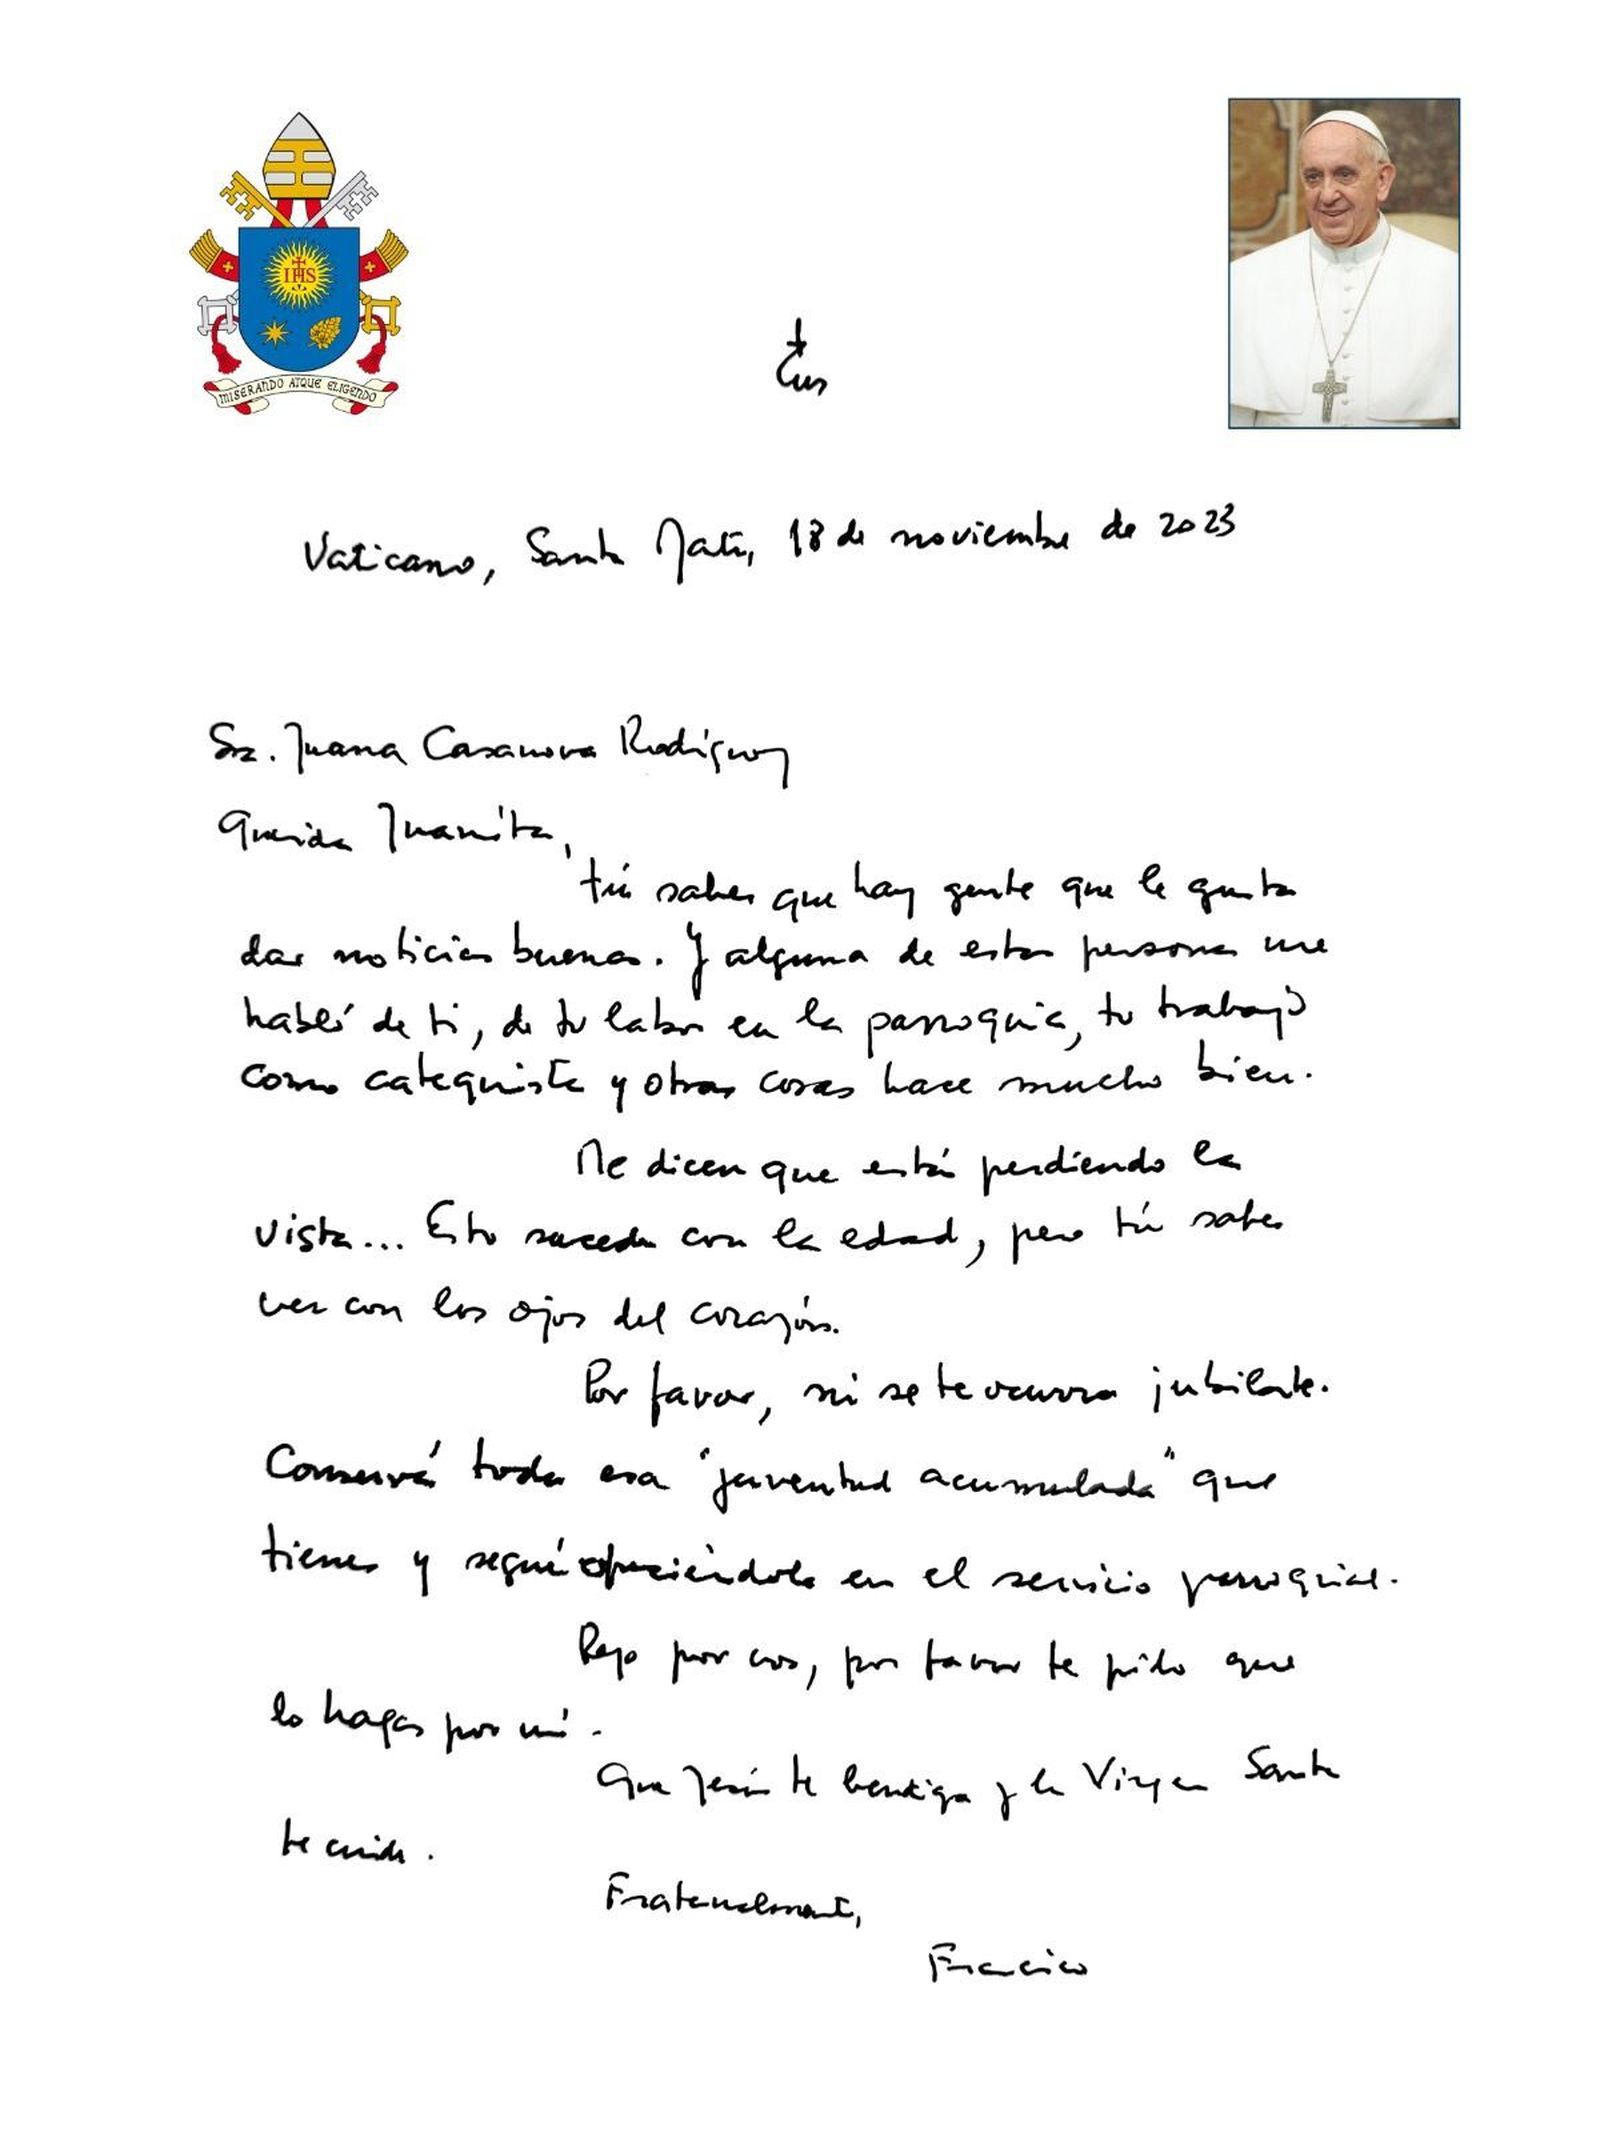 IHS
MISERANDO ATQUE ELIGENDO
Vaticano, Santa Marta, 18 de noviembre de 2023
Sra. Juana Casanova Rodríguez
Querida Juanita,
tú sabes que hay gente que le gusta
dar noticias buenas. Y alguna de estas personas me
habló de ti, de tu labor en la parroquia, tu trabajo
como catequista y otras cosas hace mucho bien.
Me dicen que estás perdiendo la
vista... Esto sucede con la edad, pero tú sabes
ver con los ojos del corazón.
Por favor, ni se te ocurra jubilarte.
Conservá toda esa "juventud acumulada" que
tienes y seguí ofreciéndola en el servicio parroquial.
Rezo por vos, por favor te pido que
lo hagas por mí.
Que Jesús te bendiga y la Virgen Santa
te cuide.
Fraternalmente,
Francisco